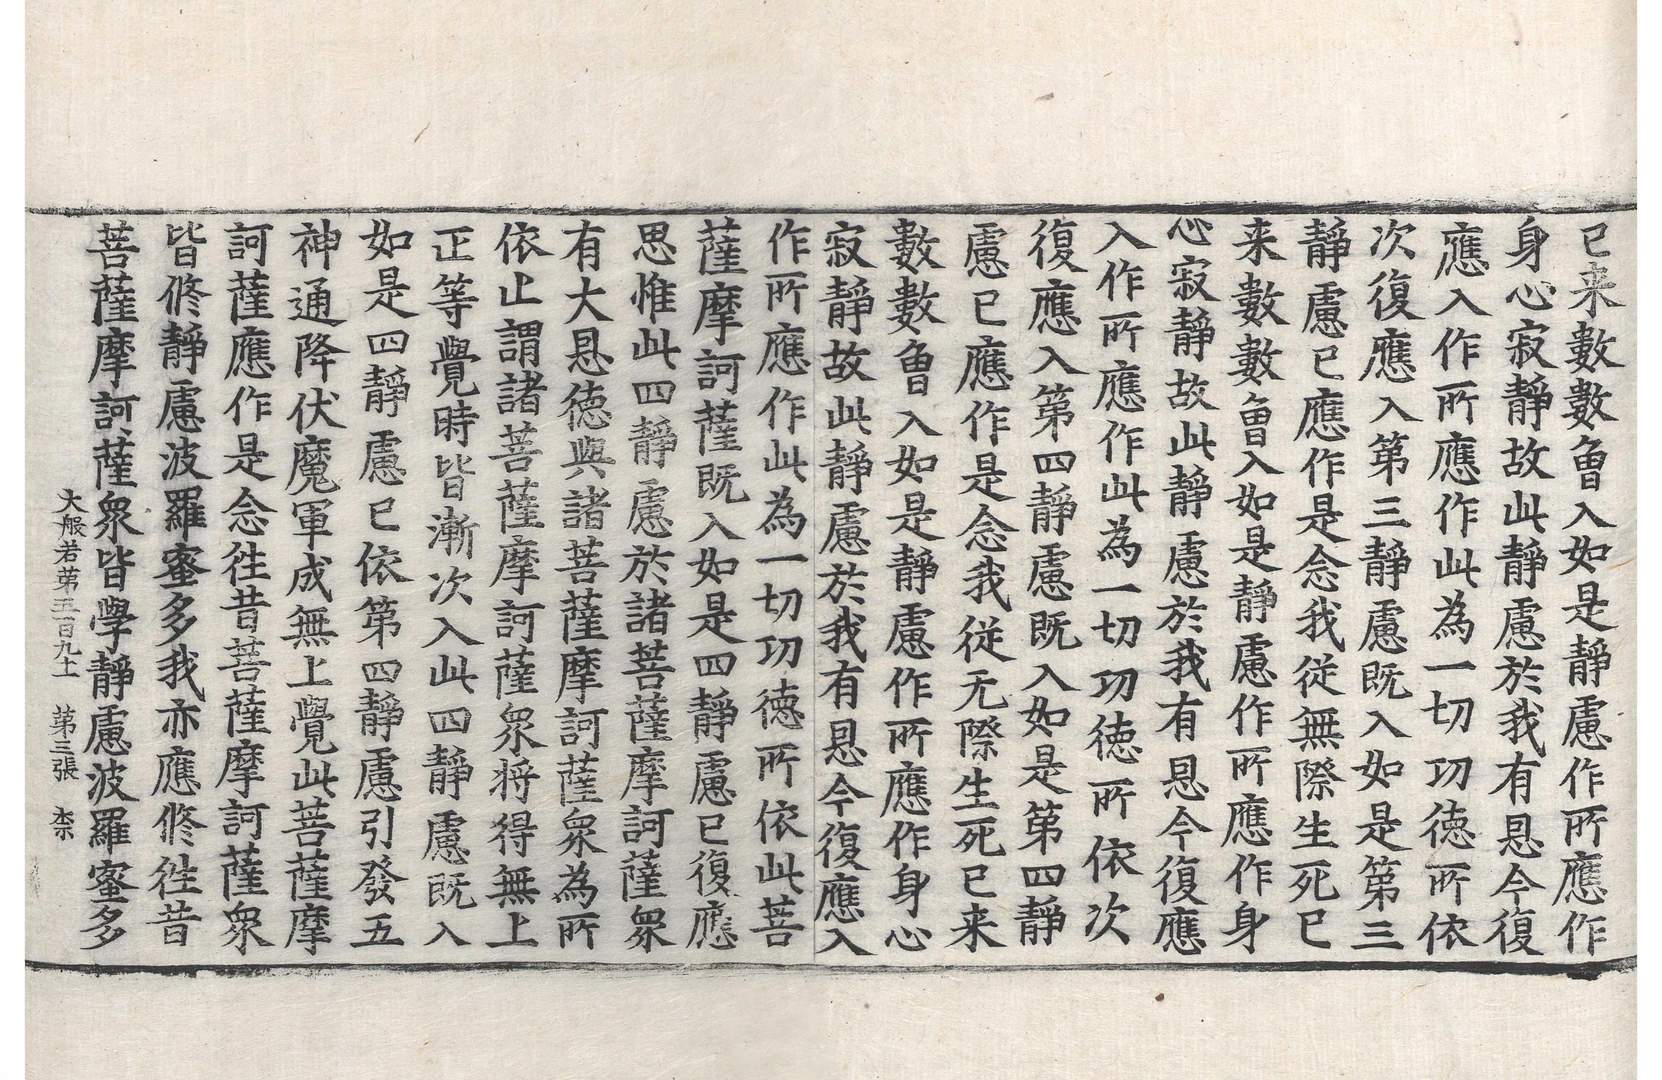 已来數數曾入如是靜慮作所應作
身心寂靜故此靜慮於我有恩今復
應入作所應作此為一切功徳所依
次復應入第三靜慮既入如是第三
靜慮已應作是念我従無際生死已
来數數曾入如是靜慮作所應作身
心寂靜故此靜慮於我有恩今復應
入作所應作此為一切功徳所依次
復應入第四靜慮既入如是第四靜
慮已應作是念我従无際生死已来
數數曾入如是靜慮作所應作身心
寂靜故此靜慮於我有恩今復應入
作所應作此為一切功徳所依此菩
薩摩訶薩既入如是四靜慮已復應
思惟此四靜慮於諸菩薩摩訶薩衆
有大恩徳與諸菩薩摩訶薩衆為所
依止謂諸菩薩摩訶薩衆将得無上
正等覺時皆漸次入此四靜慮既入
如是四靜慮已依第四靜慮引發五
神通降伏魔軍成無上覺此菩薩摩
訶薩應作是念徃昔菩薩摩訶薩衆
皆修靜慮波羅蜜多我亦應修徃昔
菩薩摩訶薩衆皆學靜慮波羅蜜多
大般若第三百九十 第三張 柰